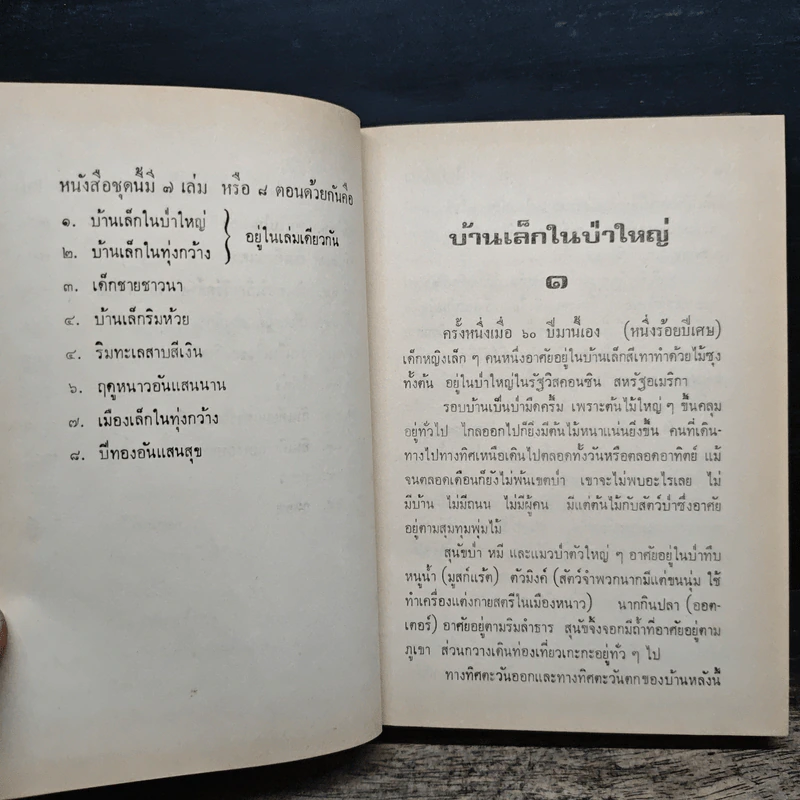 หนังสือชุดนี้มี ๗ เล่ม หรือ ๘ ตอนด้วยกันคือ
๑. บ้านเล็กในป่าใหญ่
๒. บ้านเล็กในทุ่งกว้าง
อยู่ในเล่มเดียวกัน
๓. เด็กชายชาวนา
๔. บ้านเล็กริมห้วย
๕. ริมทะเลสาบสีเงิน
๖. ฤดูหนาวอันแสนนาน
๗. เมืองเล็กในทุ่งกว้าง
๘. ปีทองอันแสนสุข
บ้านเล็กในป่าใหญ่
๑
ครั้งหนึ่งเมื่อ ๖๐ ปีมานี้เอง (หนึ่งร้อยปีเศษ)
เด็กหญิงเล็ก ๆ คนหนึ่งอาศัยอยู่ในบ้านเล็กสีเทาทำด้วยไม้ซุง
ทั้งต้น อยู่ในป่าใหญ่ในรัฐวิสคอนซิน สหรัฐอเมริกา
รอบบ้านเป็นป่ามืดครึ้ม เพราะต้นไม้ใหญ่ ๆ ขึ้นคลุม
อยู่ทั่วไป ไกลออกไปก็ยังมีต้นไม้หนาแน่นยิ่งขึ้น คนที่เดิน-
ทางไปทางทิศเหนือเดินไปตลอดทั้งวันหรือตลอดอาทิตย์ แม้
จนตลอดเดือนก็ยังไม่พ้นเขตป่า เขาจะไม่พบอะไรเลย ไม่
มีบ้าน ไม่มีถนน ไม่มีผู้คน มีแต่ต้นไม้กับสัตว์ป่าซึ่งอาศัย
อยู่ตามสุมทุมพุ่มไม้
สุนัขป่า หมี และแมวป่าตัวใหญ่ ๆ อาศัยอยู่ในป่าทึบ
หนูน้ำ (มูสก์แร้ต) ตัวมิงค์ (สัตว์จำพวกนากมีแต่ขนนุ่ม ใช้
ทำเครื่องแต่งกายสตรีในเมืองหนาว) นากกินปลา (ออต-
เตอร์) อาศัยอยู่ตามริมลำธาร สุนัขจิ้งจอกมีถ้ำที่อาศัยอยู่ตาม
ภูเขา ส่วนกวางเดินท่องเที่ยวเกะกะอยู่ทั่ว ๆ ไป
ทางทิศตะวันออกและทางทิศตะวันตกของบ้านหลังนี้